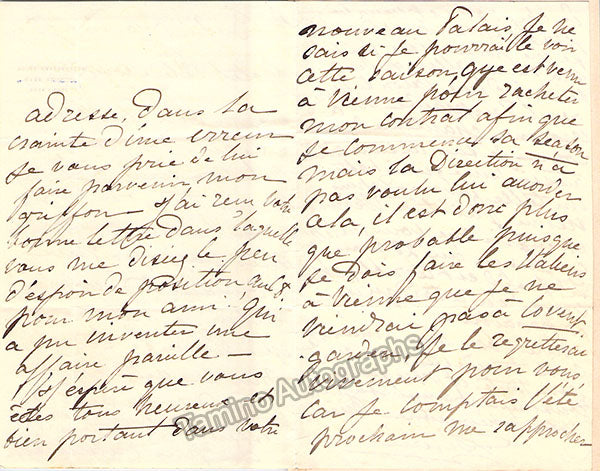 adresse, dans la
crainte d'une erreur
je vous prie de lui
faire parvenir mon
griffon J'ai reçu votre
bonne lettre dans laquelle
vous me disez le peu
d'espoir de position
pour mon ami! Qui
a pu inventer une
affaire pareille —
J'espère que vous
êtes tous heureux et
bien portant dans votre
nouveau Palais, je ne
sais si je pourrai le voir
cette saison, que est venu
à Vienne pour racheter
mon contrat afin que
je commence sa season
mais la Direction n'a
pas voulu lui accorder
cela, il est donc plus
que probable puisque
je dois faire les Italiens
à Vienne que je ne
viendrai pas à Covent
garden je le regretterai
vivement pour vous
car je comptais l'été
prochain me rapprocher
Tamino Autographs